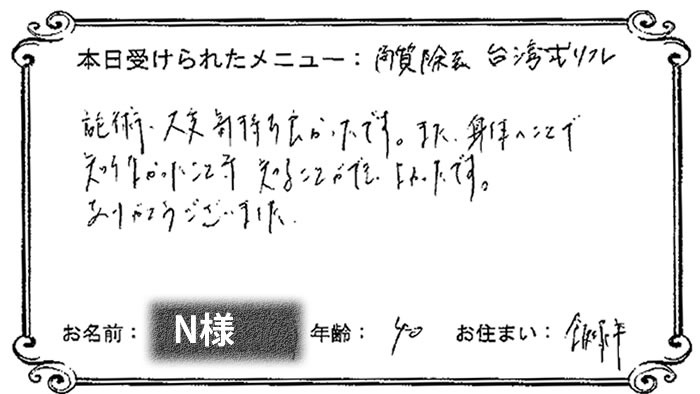 本日受けられたメニュー：角質除去 台湾式リフレ
施術、大変気持ち良かったです。また、身体のことで
知らなかったことを 知ることができ、よかったです。
ありがとうございました。
お名前： N様 年齢： 40 お住まい：